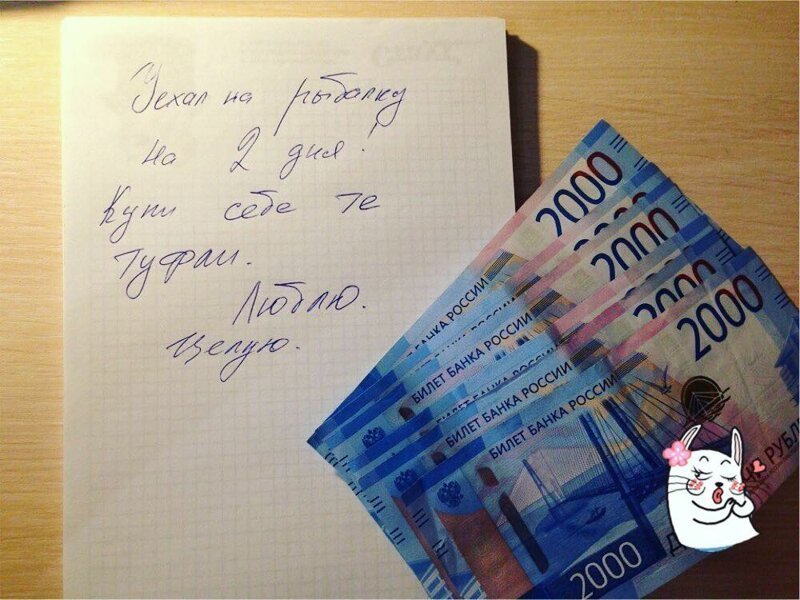 Уехал на рыбалку
на 2 дня!
Купи себе те
туфли.
Люблю.
Целую.
2000
2000
2000
2000
БАНКА РОССИИ
БИЛЕТ БАНКА РОССИИ
БИЛЕТ БАНКА РОССИИ
БИЛЕТ БАНКА РОССИИ
2000